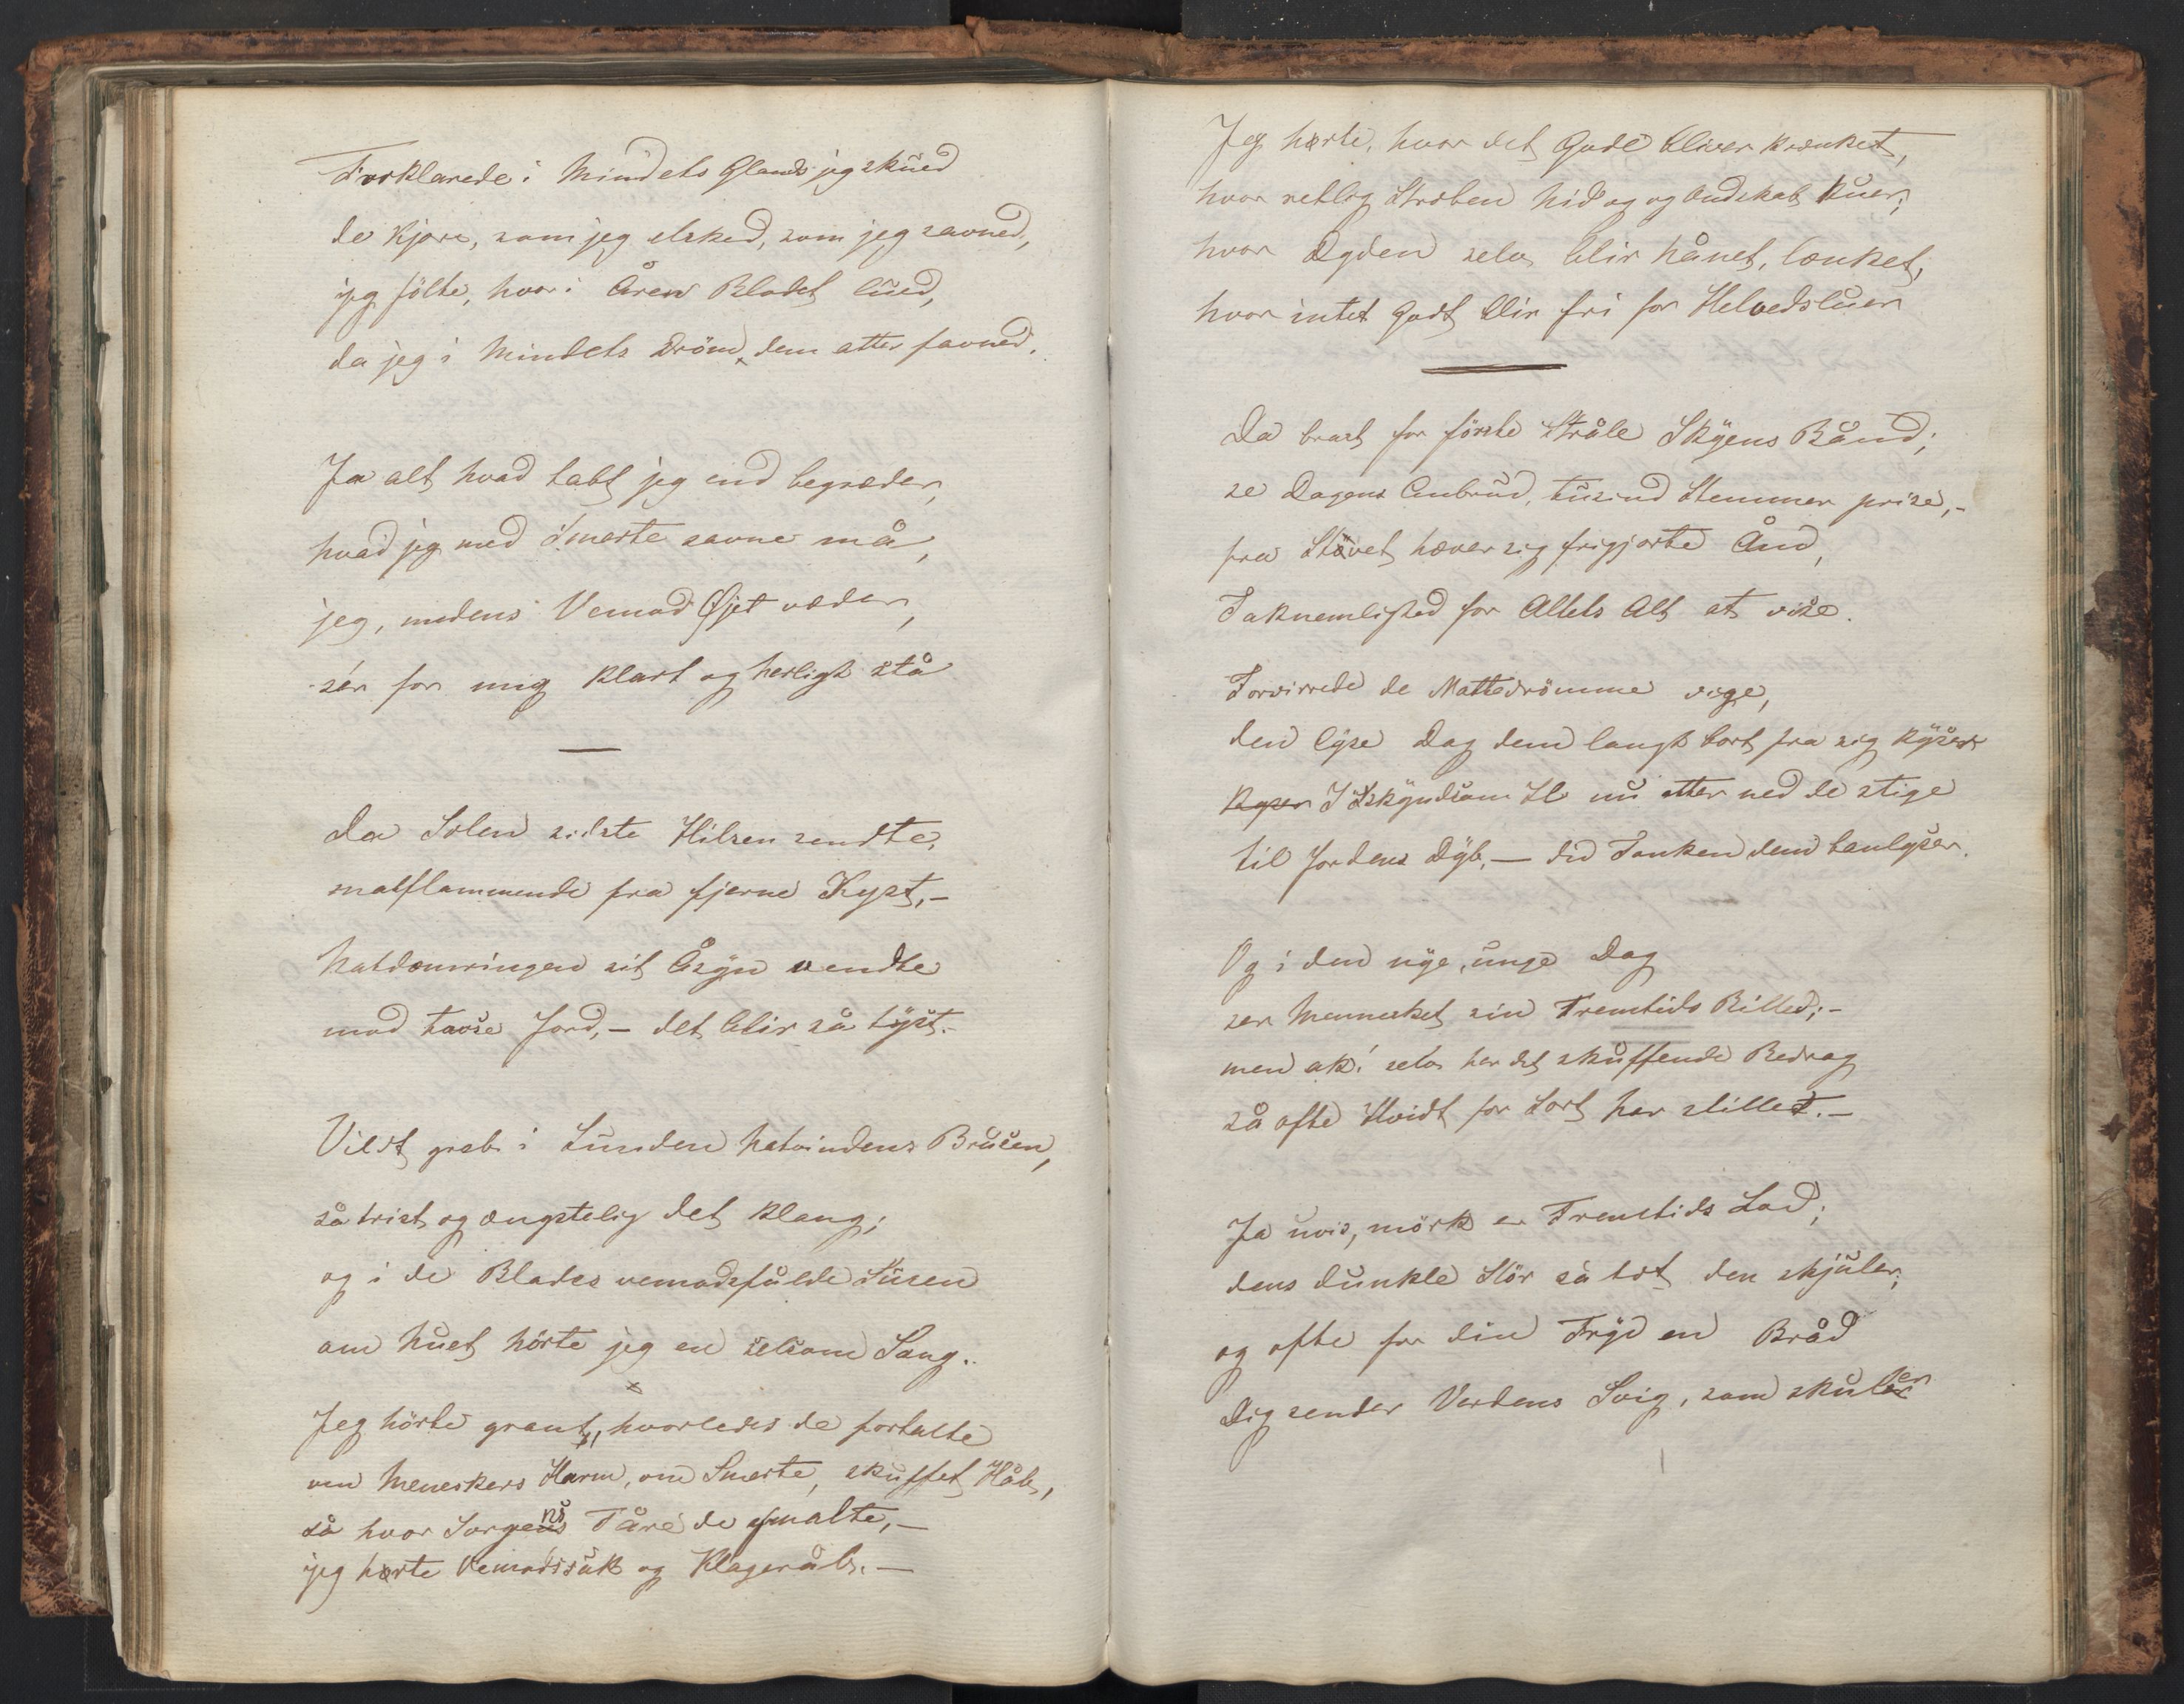 Forklarede i Mindets Glands jeg skued
de Kjære, som jeg elsked, som jeg savned,
jeg fölte, hvor i Åren Blodet lued,
da jeg i Mindets Dröm dem atter favned.
Ja alt hvad tabt jeg end begræder,
hvad jeg med Smerte savne må,
jeg, medens Vemod Øjet væder,
sér for mig klart og herligt stå
Da Solen sidste Hilsen sendte,
matflammende fra fjerne Kyst,-
Natdæmringen sit Åsyn vendte
mod tavse Jord,- det blir så tyst.-
Vildt greb i Lunden Natvindens Brusen,
så trist og ængstelig det klang;
og i de Blades vemodsfulde Susen
om Huet hörte jeg en selsom Sang..
Jeg hörte grant, hvorledes de fortalte
om Meneskers Harm, om Smerte, skuffet Håb,
så hvor Sorgens Tåre de gmalte,-
jeg hørte Vemodssuk og Klageråb.-
Jeg hørte, hvor det Gode bliver krænket,
hvor retlig Stræben Nid og og Ondskab kuer;
hvor Dyden selv blir hånet, lænket,
hvor intet Godt blir fri for Helvedsluer
Da brast for förste Stråle Skyens Bånd;
se Dagens Anbrud, tusind Stemmer prise,-
fra Støvet hæver sig frigjorte Ånd,
Taknemlighed for Altets Alt at vise.
Forvirrede de Nattedrömme vige,
den lyse Dag dem langt bort fra sig kyser
kyser I Ilskyndsom Il nu atter ned de stige
til Jordens Dyb,- did Tanken dem banlyser.
Og i den nye, unge Dag
ser Mennesket sin Fremtids Billed;-
men ak! selv her det skuffende Bedrag
så ofte Hvidt for Sort har stillet.-
Ja uvis, mörk er Fremtids Lod;
dens dunkle Slör så tæt den skjuler;
og ofte for din Fryd en Bråd
Dig sender Verdens Svig, som skuler